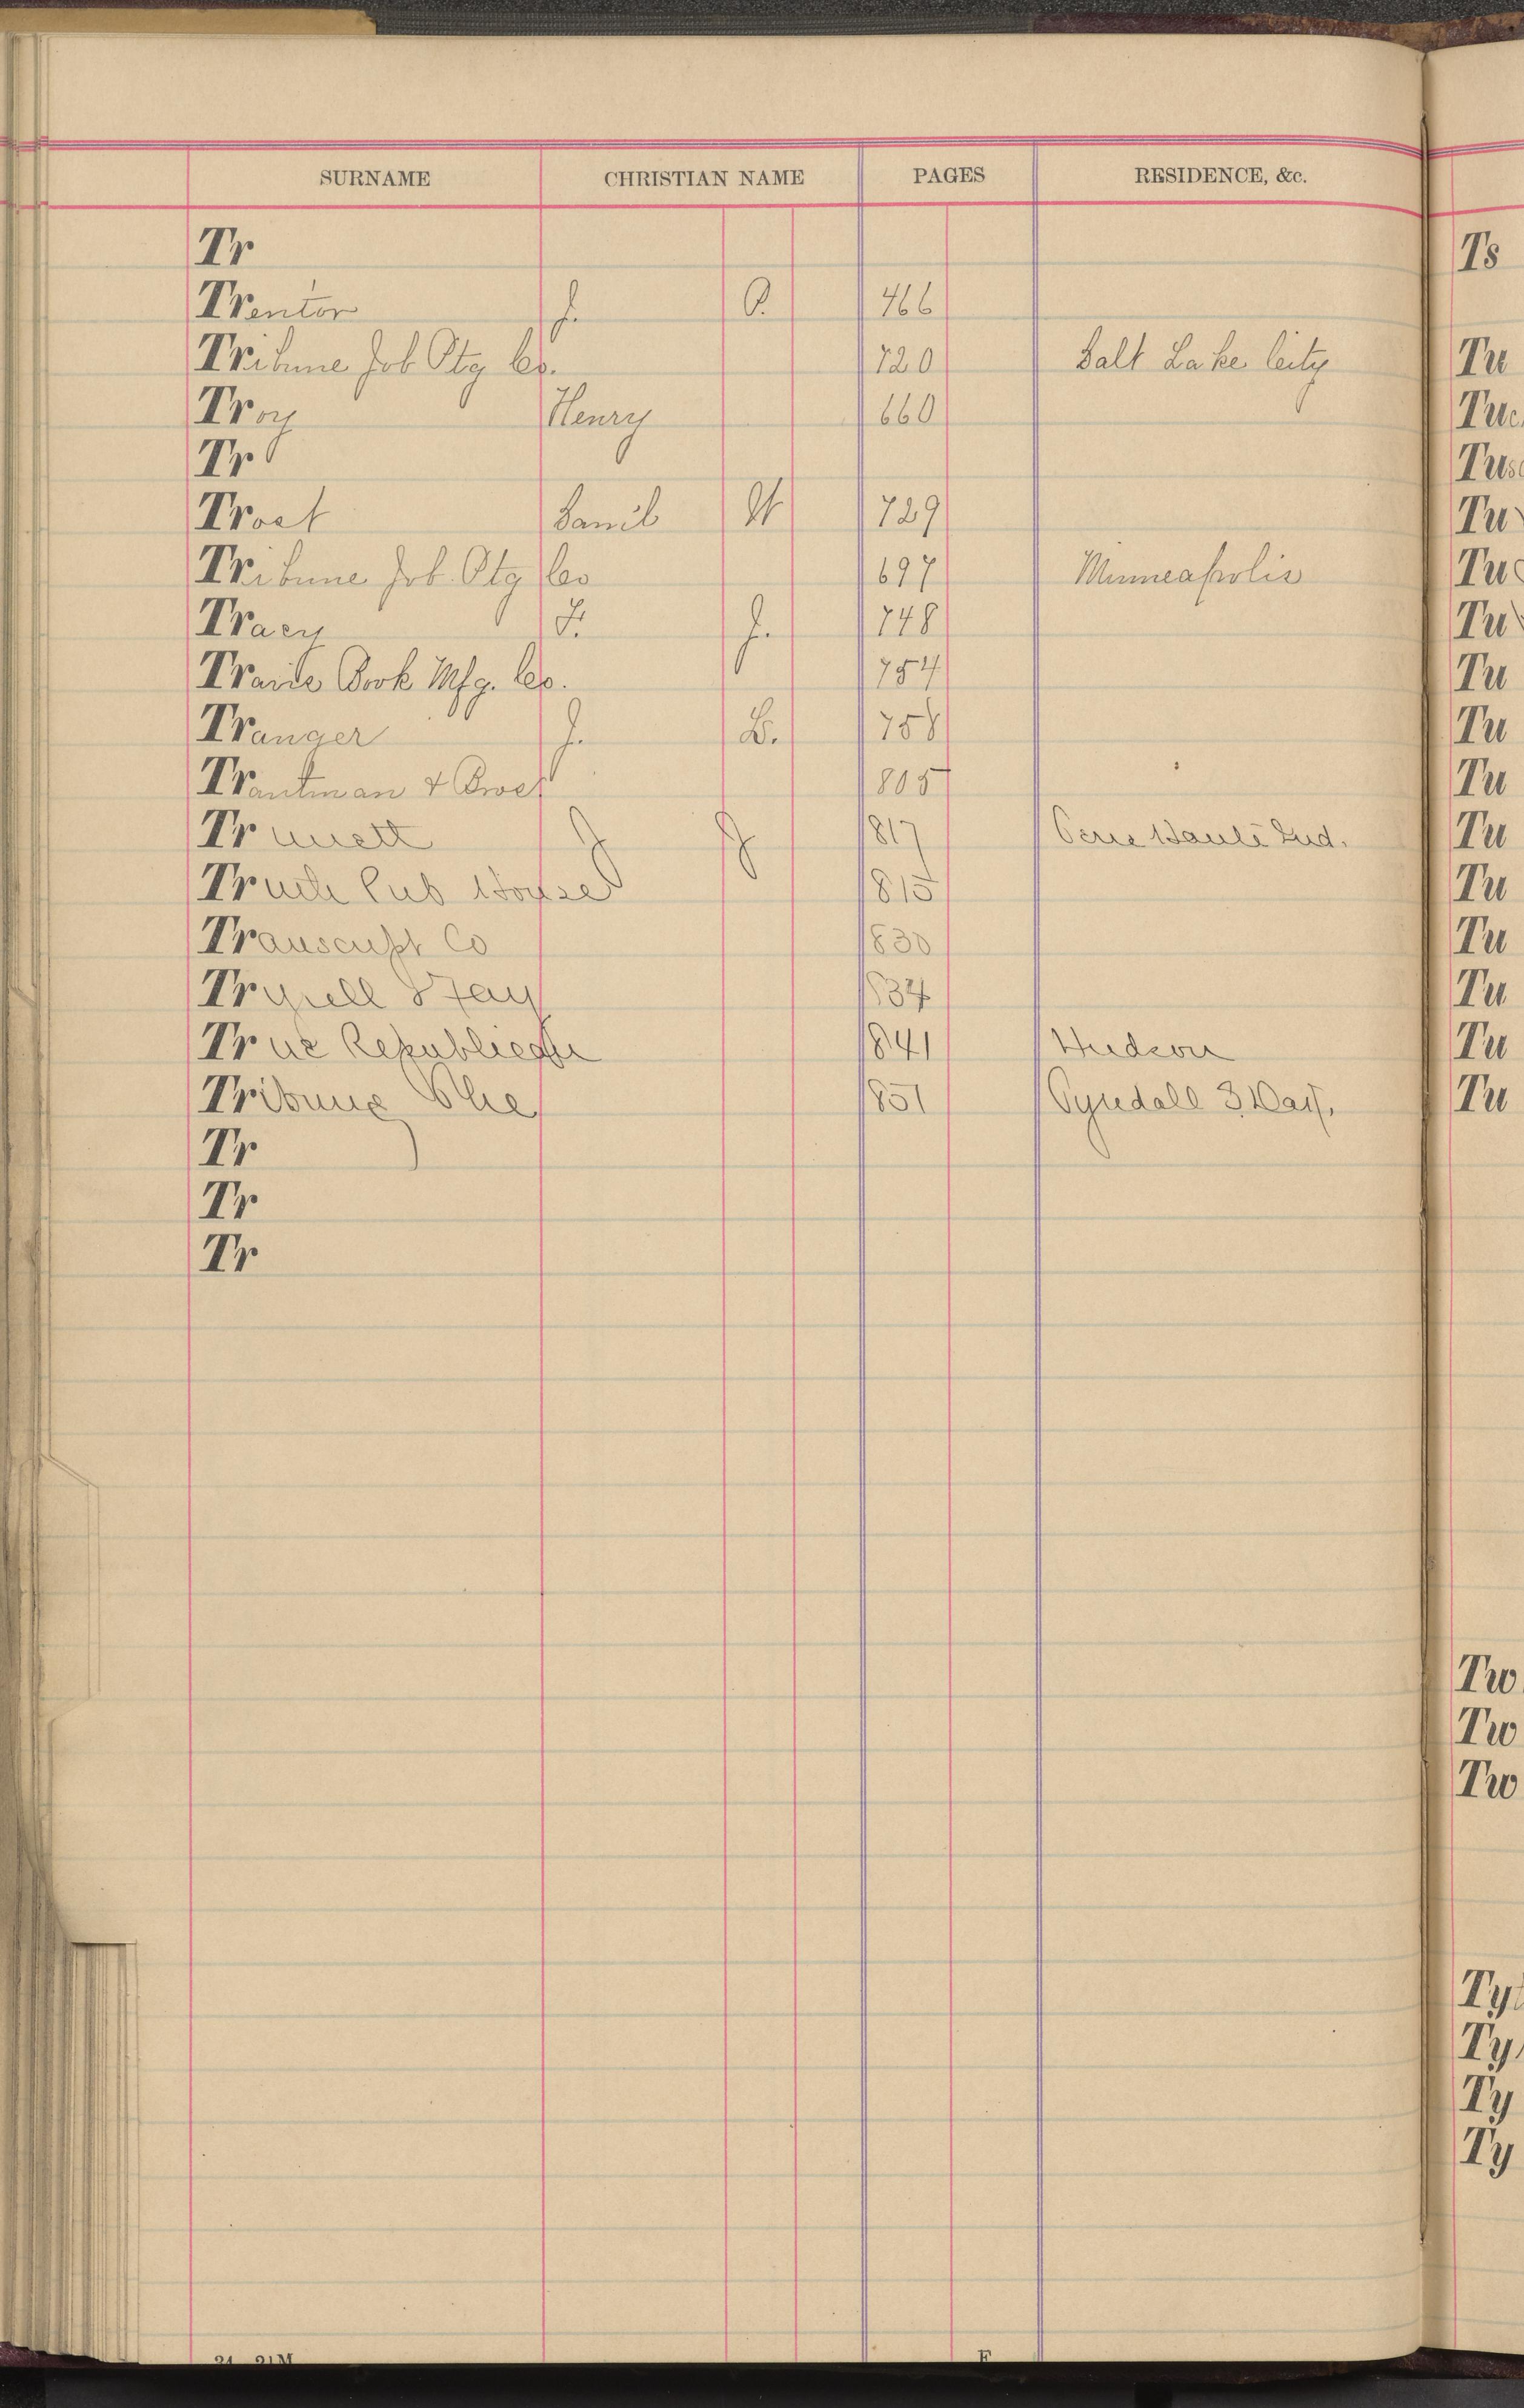 SURNAME CHRISTIAN NAME PAGES RESIDENCE, &c.
Tr
Trentor J. P. 466
Tribune Job Ptg Co. 720 Salt Lake City
Troy Henry 660
Tr
Trost Saml W 729
Tribune Job Ptg Co 697 Minneapolis
Tracy F. J. 748
Book Mfg. Co. 754
Tranger J. B. 758
Trautman & 805
Tr J J 817 Terre Haute Ind.
Truth Pub House 815
Transcript Co 830
834
True Republican 841 Hudson
Tribune The 851 Tyndall S. Dak.
Tr
Tr
Tr
Ts
Tu
Tu
Tu
Tu
Tu
Tu
Tu
Tu
Tu
Tu
Tu
Tu
Tu
Tu
Tu
Tw
Tw
Tw
Ty
Ty
Ty
Ty